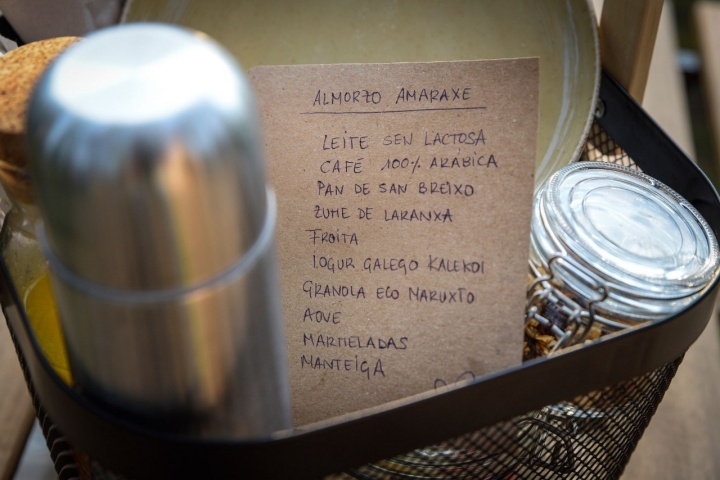 ALMORZO AMARAXE
LEITE SEN LACTOSA
CAFÉ 100% ARÁBICA
PAN DE SAN BREIXO
ZUME DE LARANXA
FROITA
IOGUR GALEGO KALEKOI
GRANOLA ECO MARUXTO
AOVE
MARMELADAS
MANTEIGA